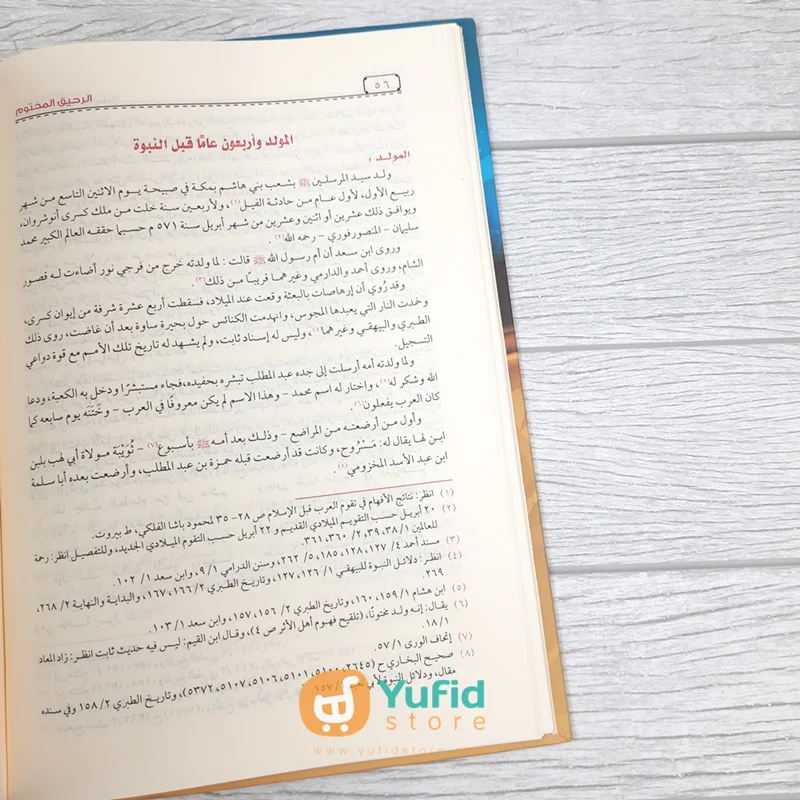 ٥٦
الرحيق المختوم
المولد وأربعون عامًا قبل النبوة
المولد :
ولد سيد المرسلين ﷺ بشعب بني هاشم بمكة في صبيحة يوم الاثنين التاسع من شهر
ربيع الأول، لأول عام من حادثة الفيل(١)، ولأربعين سنة خلت من ملك كسرى أنوشروان،
ويوافق ذلك عشرين أو اثنين وعشرين من شهر أبريل سنة ٥٧١ م حسبما حققه العالم الكبير محمد
سليمان – المنصورفوري – رحمه الله(٢).
وروى ابن سعد أن أم رسول الله ﷺ قالت : لما ولدته خرج من فرجي نور أضاءت له قصور
الشام، وروى أحمد والدارمي وغيرهما قريبًا من ذلك(٣).
وقد رُوي أن إرهاصات بالبعثة وقعت عند الميلاد، فسقطت أربع عشرة شرفة من إيوان كسرى،
وخمدت النار التي يعبدها المجوس، وانهدمت الكنائس حول بحيرة ساوة بعد أن غاضت، روى ذلك
الطبري والبيهقي وغيرهما(٤)، وليس له إسناد ثابت، ولم يشهد له تاريخ تلك الأمم مع قوة دواعي
التسجيل.
ولما ولدته أمه أرسلت إلى جده عبد المطلب تبشره بحفيده، فجاء مستبشرًا ودخل به الكعبة، ودعا
الله وشكر له(٥)، واختار له اسم محمد – وهذا الاسم لم يكن معروفًا في العرب – وخَتَنَه يوم سابعه كما
كان العرب يفعلون(٦).
وأول من أرضعته من المراضع – وذلك بعد أمه ﷺ بأسبوع(٧) – ثُوَيْبَة مولاة أبي لهب بلبن
ابن لها يقال له: مَسْرُوح، وكانت قد أرضعت قبله حمزة بن عبد المطلب، وأرضعت بعده أبا سلمة
ابن عبد الأسد المخزومي(٨).
(١) انظر: نتائج الأفهام في تقوم العرب قبل الإسلام ص ٢٨- ٣٥ لمحمود باشا الفلكي، ط بيروت.
(٢) ٢٠ أبريل حسب التقويم الميلادي القديم و ٢٢ أبريل حسب التقوم الميلادي الجديد، وللتفصيل انظر: رحمة
للعالمين ١/ ٣٨، ٣٩، ٢/ ٣٦٠، ٣٦١.
(٣) مسند أحمد ٤/ ١٢٧، ١٢٨، ١٨٥، ٥/ ٢٦٢، وسنن الدرامي ١/ ٩، وابن سعد ١/ ١٠٢.
(٤) انظر: دلائل النبوة للبيهقي ١/ ١٢٦، ١٢٧، وتاريخ الطبري ٢/ ١٦٦، ١٦٧، والبداية والنهاية ٢/ ٢٦٨،
٢٦٩.
(٥) ابن هشام ١/ ١٥٩، ١٦٠، وتاريخ الطبري ٢/ ١٥٦، ١٥٧، وابن سعد ١/ ١٠٣.
(٦) يقال: إنه ولد مختونًا، (تلقيح فهوم أهل الأثر ص ٤)، وقال ابن القيم: ليس فيه حديث ثابت انظر: زاد المعاد
١/ ١٨.
(٧) إتحاف الورى ١/ ٥٧.
(٨) صحيح البخاري ح (٢٦٤٥، ٥١٠٠، ٥١٠١، ٥١٠٦، ٥١٠٧، ٥٣٧٢)، وتاريخ الطبري ٢/ ١٥٨ وفي سنده
مقال، ودلائل النبوة لأبي ١/ ١٥٧.
Yufid
store
www.yufidstore